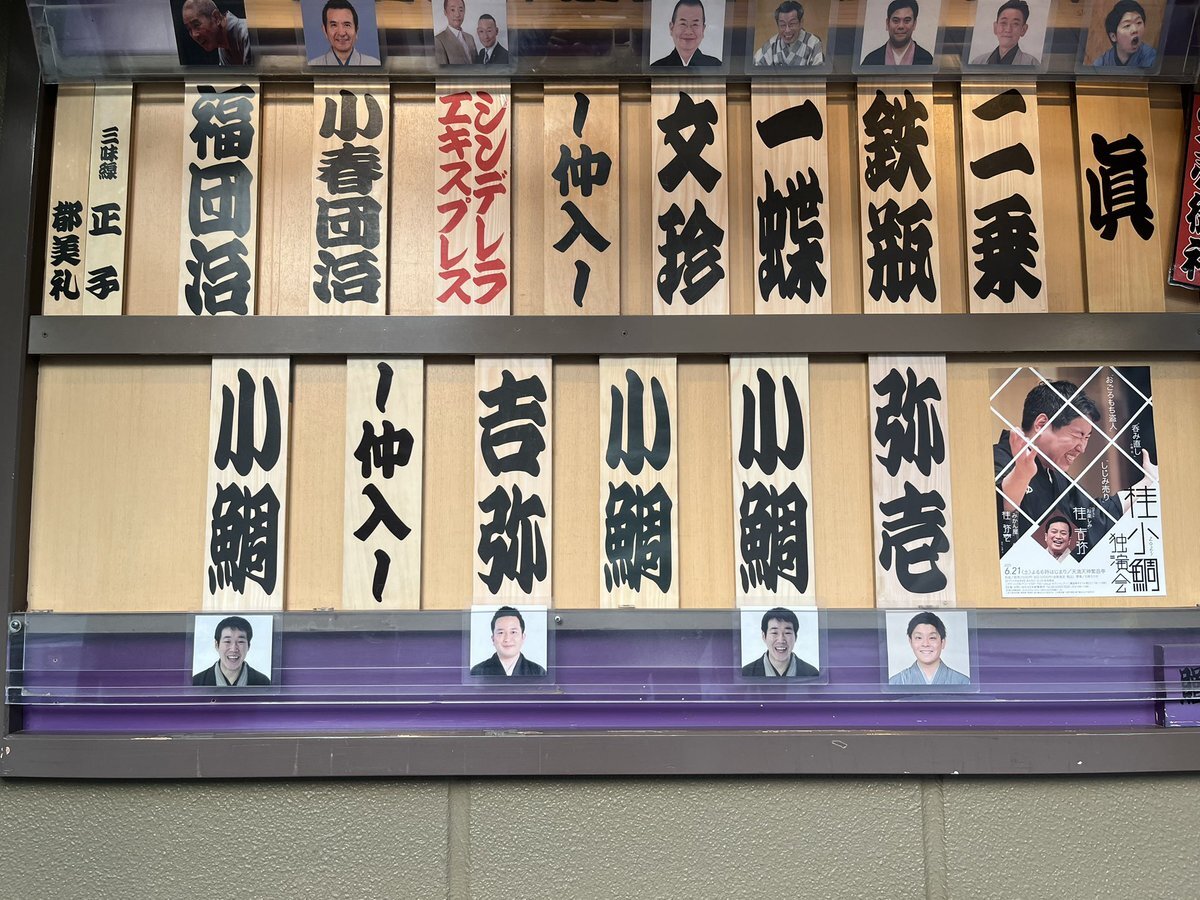 眞
二乗
鉄瓶
一蝶
文珍
ー仲入ー
シンデレラ
エキスプレス
小春団治
福団治
三味線 正子
都美礼
弥壱
小鯛
小鯛
吉弥
ー仲入ー
小鯛
おごろもち盗人
呑み直し
しじみ売り
桂小鯛
独演会
桂吉弥
6.21(土)